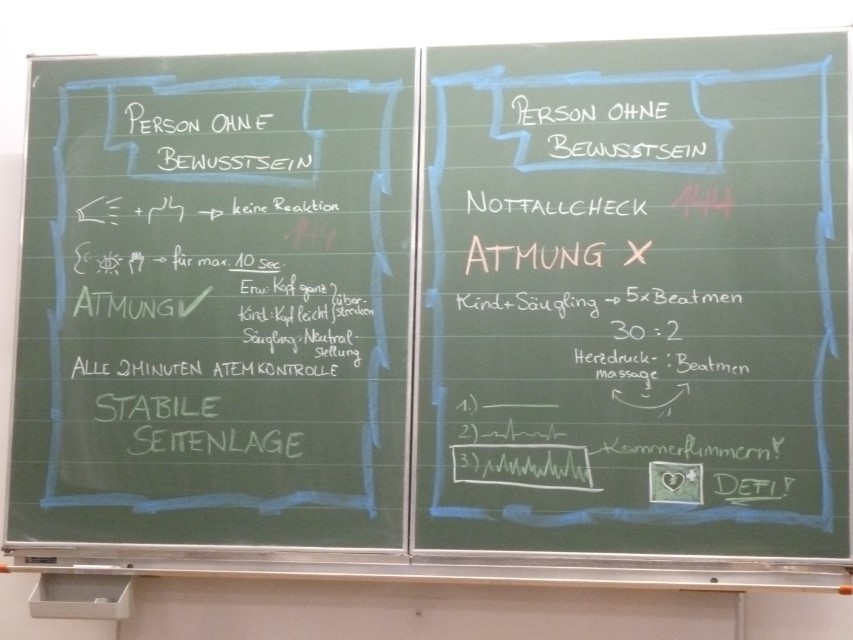 PERSON OHNE
BEWUSSTSEIN
+ → keine Reaktion
144
→ für max. 10 sec.
ATMUNG ✓
Erw: Kopf ganz
Kind: Kopf leicht
überstrecken
Säugling: Neutral-
stellung
ALLE 2 MINUTEN ATEMKONTROLLE
STABILE
SEITENLAGE
PERSON OHNE
BEWUSSTSEIN
NOTFALLCHECK 144
ATMUNG X
Kind+Säugling → 5x Beatmen
30 : 2
Herzdruck- : Beatmen
massage
1.)
2.)
3.) Kammerflimmern!
DEFI!